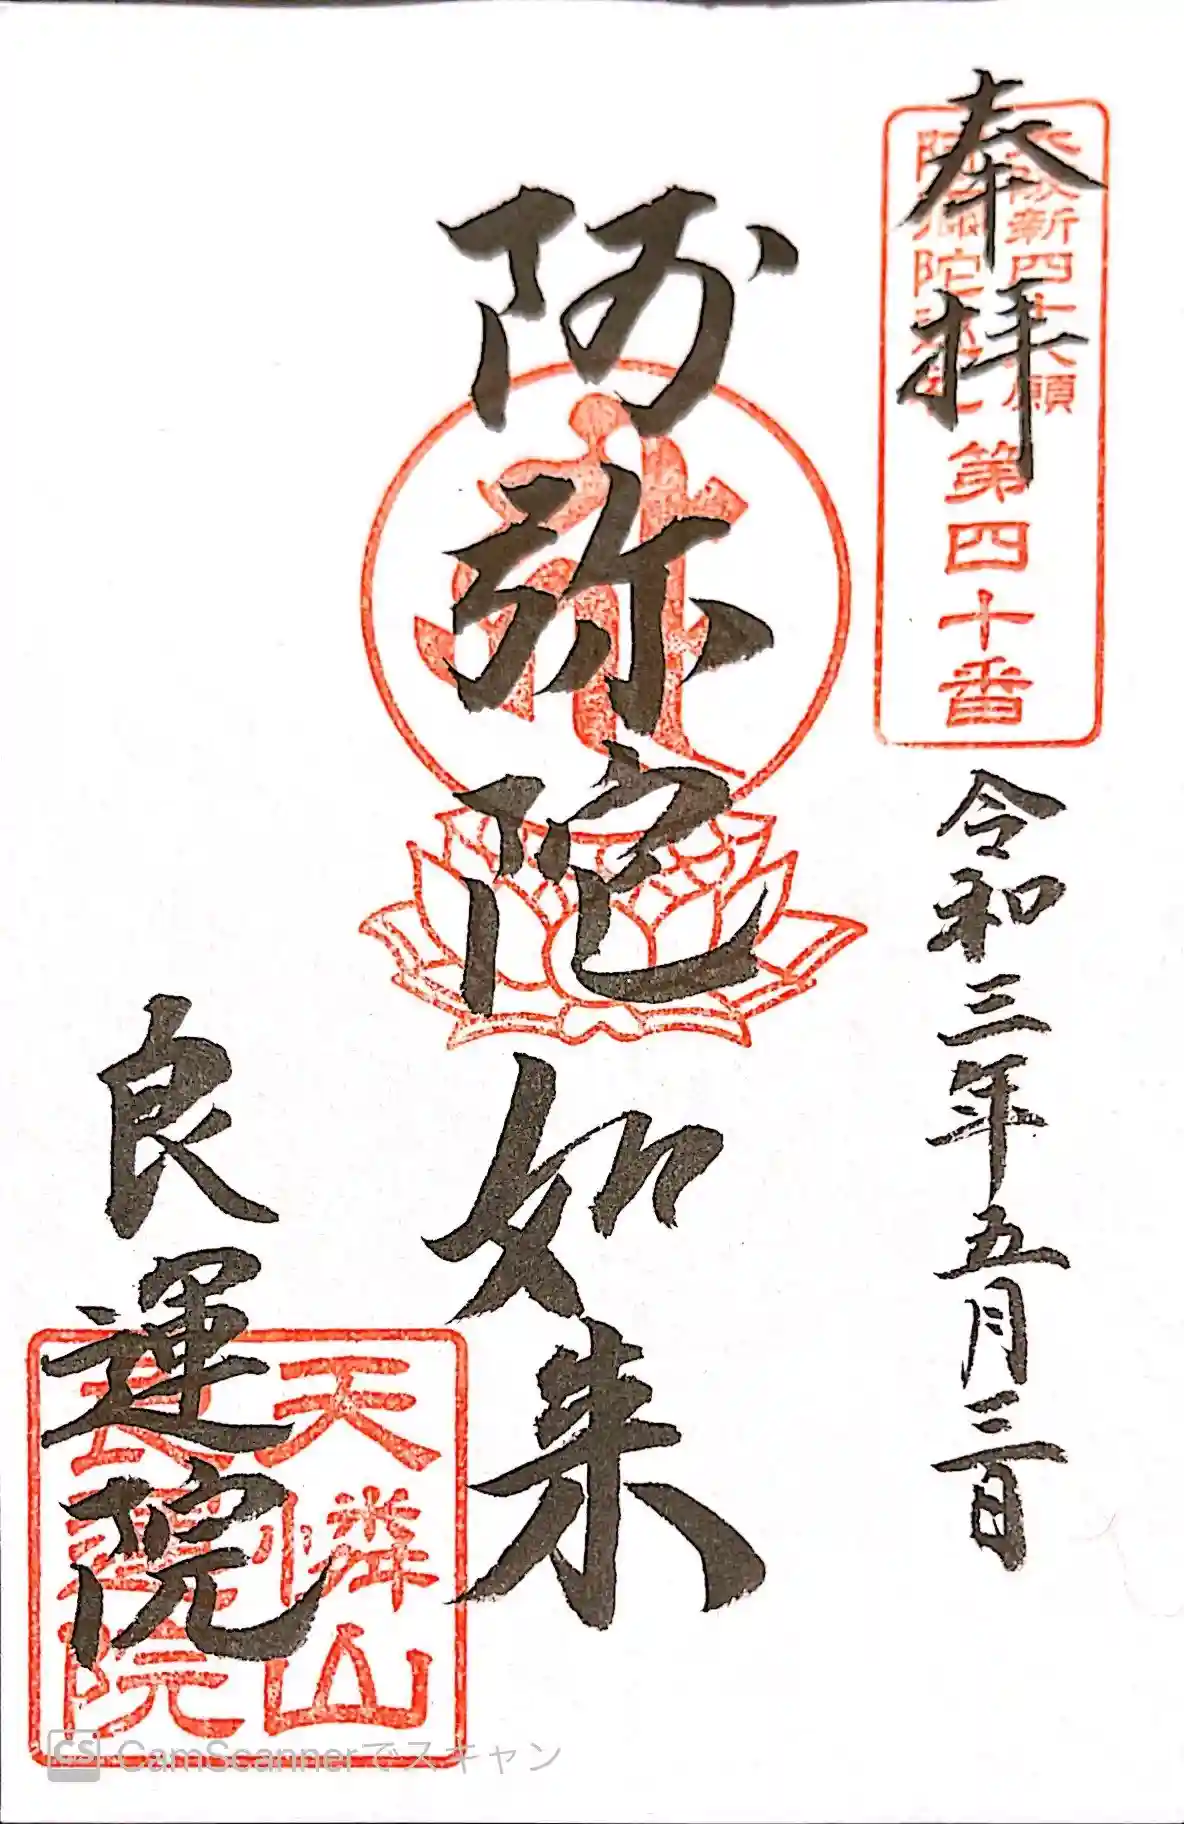 奉拝
大阪新四十八願
阿弥陀巡礼
第四十番
令和三年五月三日
阿弥陀如来
良運院
天憐山
良運院
CS CamScannerでスキャン